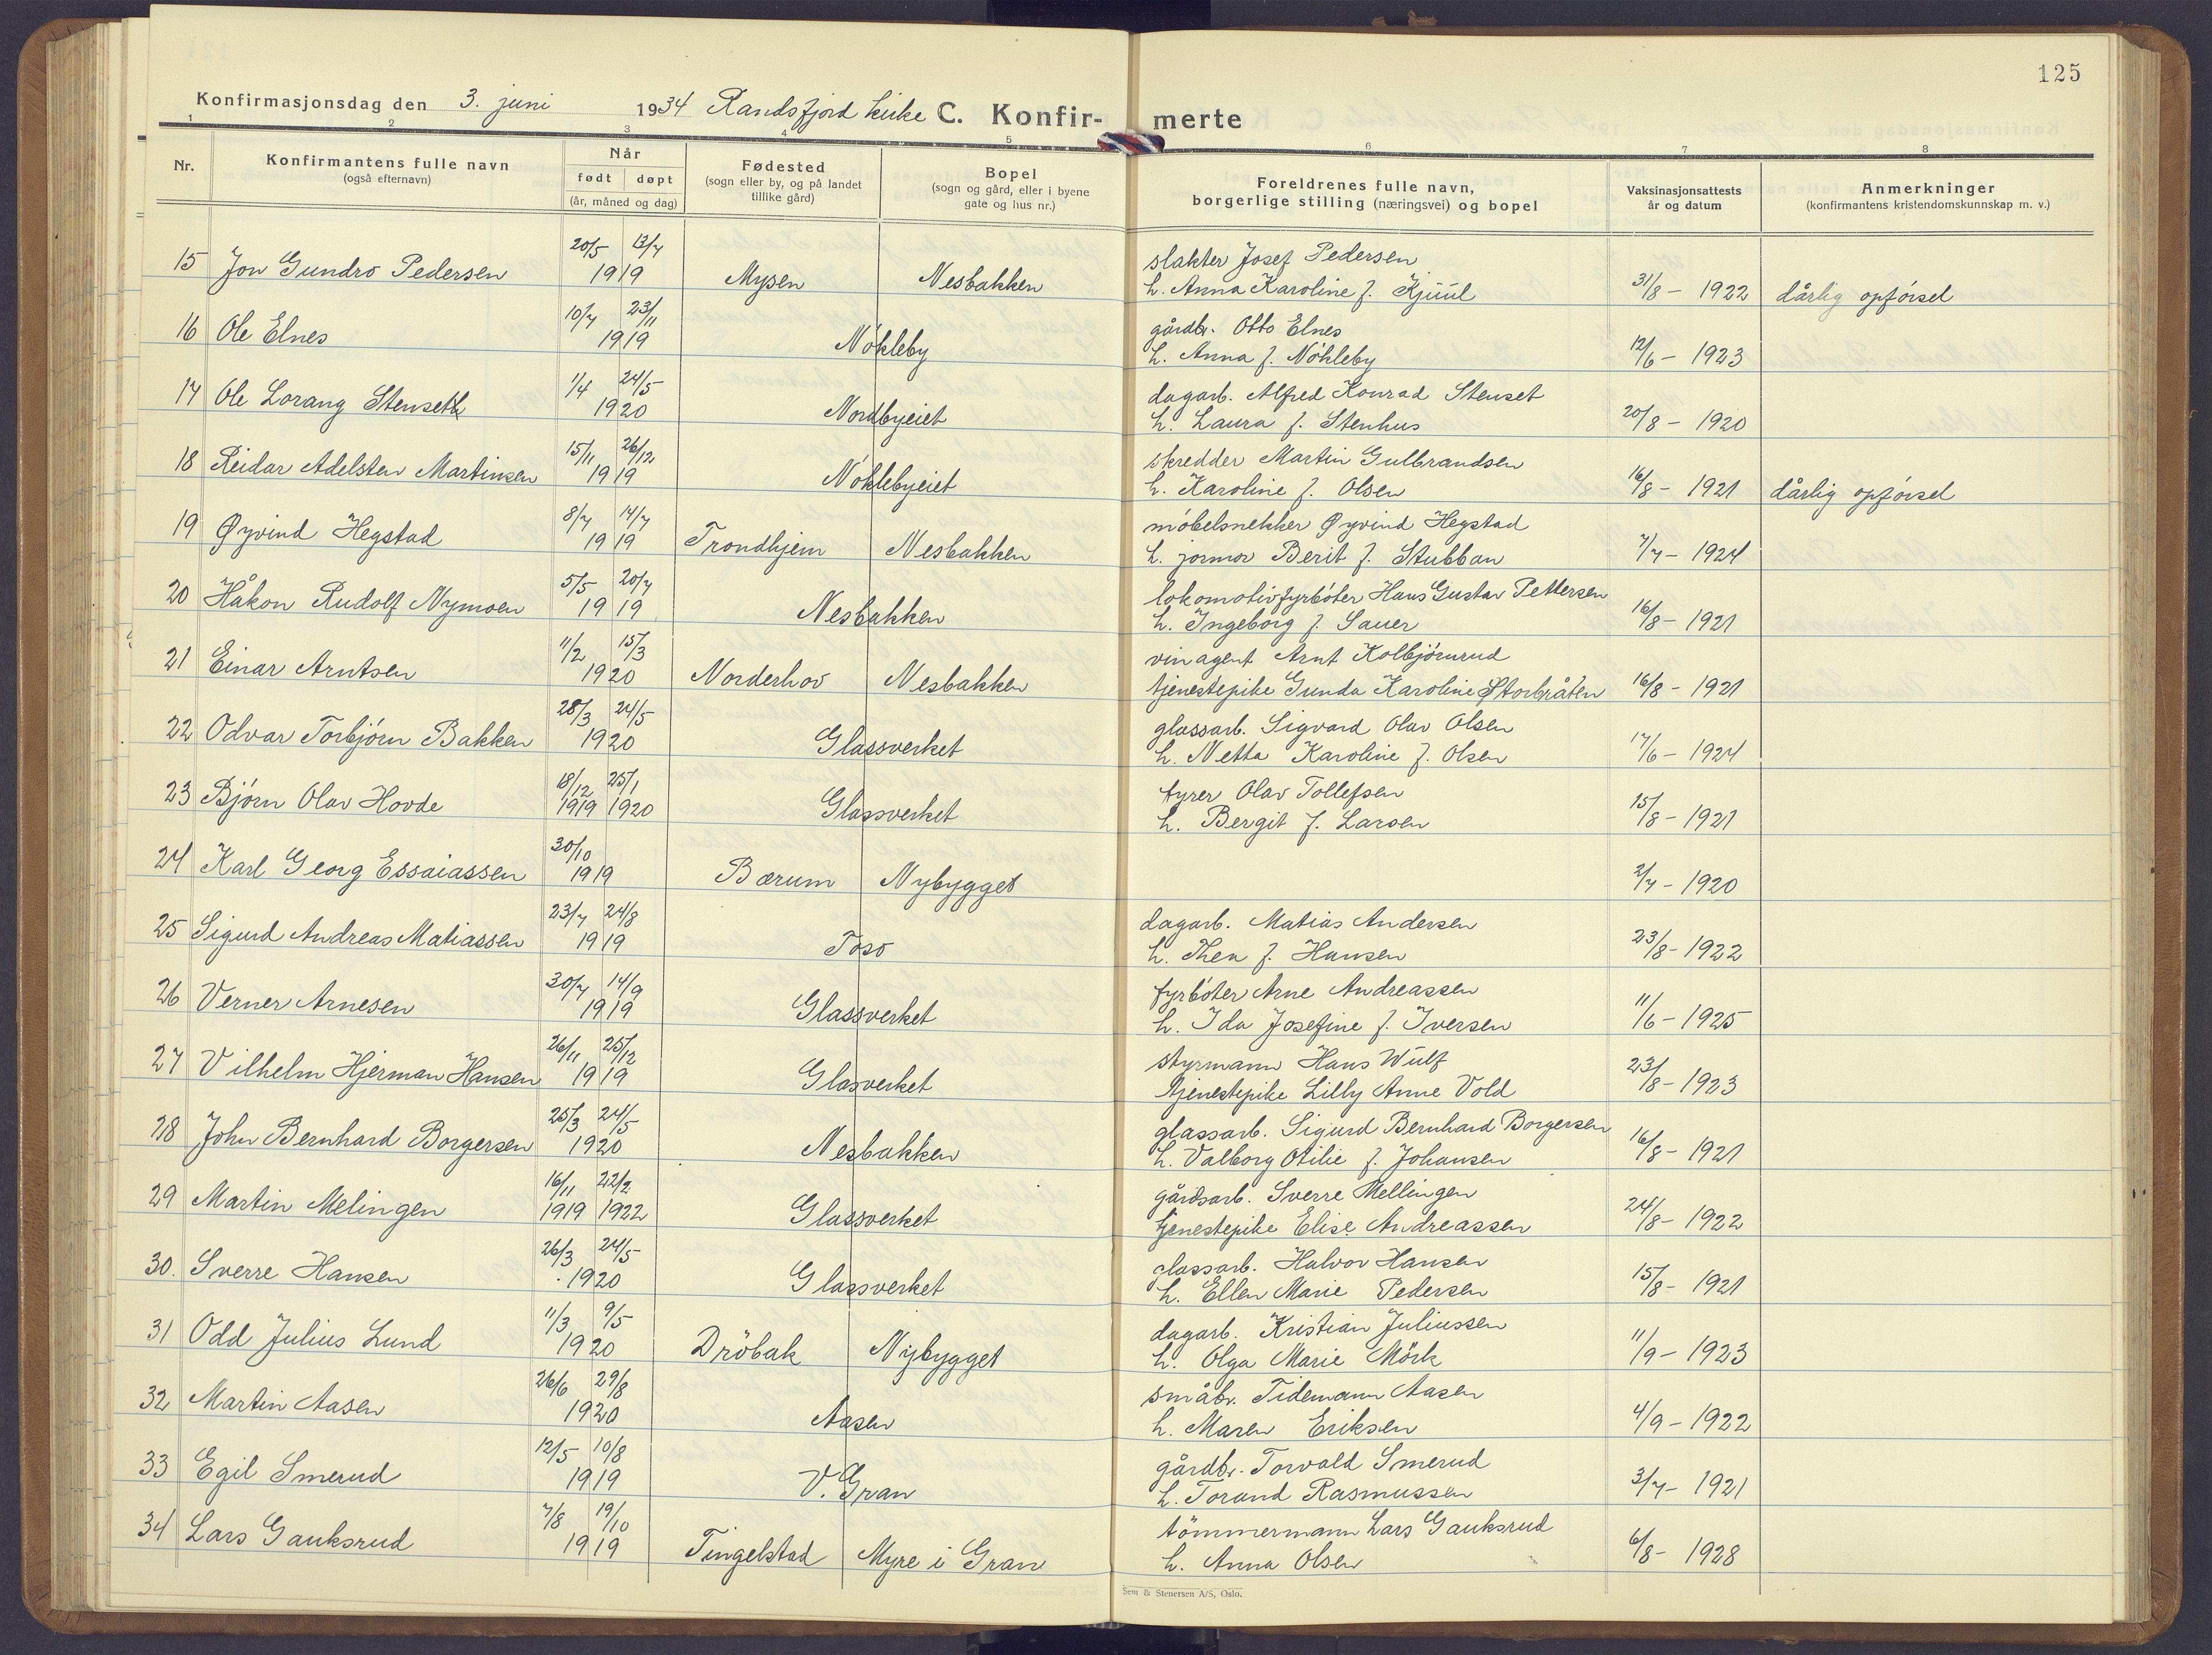 125
Konfirmasjonsdag den 3. juni 1934 Randsfjord kirke C. Konfir- merte
1 2 3 4 5 6 7 8
Nr. Konfirmantens fulle navn (også efternavn) Når født døpt (år, måned og dag) Fødested (sogn eller by, og på landet tillike gård) Bopel (sogn og gård, eller i byene gate og hus nr.) Foreldrenes fulle navn, borgerlige stilling (næringsvei) og bopel Vaksinasjonsattests år og datum Anmerkninger (konfirmantens kristendomskunnskap m. v.)
20/5 13/7 slakter Josef Pedersen
15 Jon Gundro Pedersen 1919 Mysen Nesbakken h. Anna Karoline f. Kjuul 31/8 - 1922 dårlig opførsel
10/7 23/11 gårdbr. Otto Elnes
16 Ole Elnes 1919 Nökleby h. Anna f. Nökleby 12/6 - 1923
1/4 24/5 dagarb. Alfred Konrad Stenset
17 Ole Lorang Stenseth 1920 Nordbyeiet h. Laura f. Stenhus 20/8 - 1920
15/11 26/12 skredder Martin Gulbrandsen
18 Reidar Adelsten Martinsen 1919 Nöklebyeiet h. Karoline f. Olsen 16/8 - 1921 dårlig opførsel
8/7 14/7 möbelsnekker Øyvind Hegstad
19 Øyvind Hegstad 1919 Trondhjem Nesbakken h. jormor Berit f. Stubban 7/7 - 1924
5/5 20/7 lokomotivfyrböter Hans Gustav Pettersen
20 Håkon Rudolf Nymoen 1919 Nesbakken h. Ingeborg f. Sauer 16/8 - 1921
11/2 15/3 vinagent Arnt Kolbjörnrud
21 Einar Arntsen 1920 Norderhov Nesbakken tjenestepike Gunda Karoline Storbråten 16/8 - 1921
28/3 24/5 glassarb. Sigvard Olav Olsen
22 Odvar Torbjörn Bakken 1920 Glassverket h. Netta Karoline f. Olsen 17/6 - 1924
18/12 25/1 fyrer Olav Tollefsen
23 Björn Olav Hovde 1919 1920 Glassverket h. Bergit f. Larsen 15/8 - 1921
30/10
24 Karl Georg Essaiassen 1919 Bærum Nybygget 2/7 - 1920
23/7 24/8 dagarb. Matias Andersen
25 Sigurd Andreas Matiassen 1919 Toso h. Thea f. Hansen 23/8 - 1922
30/7 14/9 fyrböter Arne Andreassen
26 Verner Arnesen 1919 Glassverket h. Ida Josefine f. Iversen 11/6 - 1925
26/11 25/12 styrmann Hans Wulf
27 Vilhelm Hjerman Hansen 1919 Glasverket tjenestepike Lilly Anne Vold 23/8 - 1923
25/3 24/5 glassarb. Sigurd Bernhard Borgersen
28 John Bernhard Borgersen 1920 Nesbakken h. Valborg Otilie f. Johansen 16/8 - 1921
16/11 22/2 gårdsarb. Sverre Mellingen
29 Martin Melingen 1919 1922 Glassverket tjenestepike Elise Andreassen 24/8 - 1922
26/3 24/5 glassarb. Halvor Hansen
30. Sverre Hansen 1920 Glassverket h. Ellen Marie Pedersen 15/8 - 1921
11/3 9/5 dagarb. Kristian Juliussen
31 Odd Julius Lund 1920 Dröbak Nybygget h. Olga Marie Mörk 11/9 - 1923
26/6 29/8 småbr. Tidemann Aasen
32 Martin Aasen 1920 Aasen h. Maren Eriksen 4/9 - 1922
12/5 10/8 gårdbr. Torvald Smerud
33 Egil Smerud 1919 V. Gran h. Torand Rasmussen 3/7 - 1921
7/8 19/10 tömmermann Lars Gauksrud
34 Lars Gauksrud 1919 Tingelstad Myre i Gran h. Anna Olsen 6/8 - 1928
Sem & Stenersen A/S, Oslo.